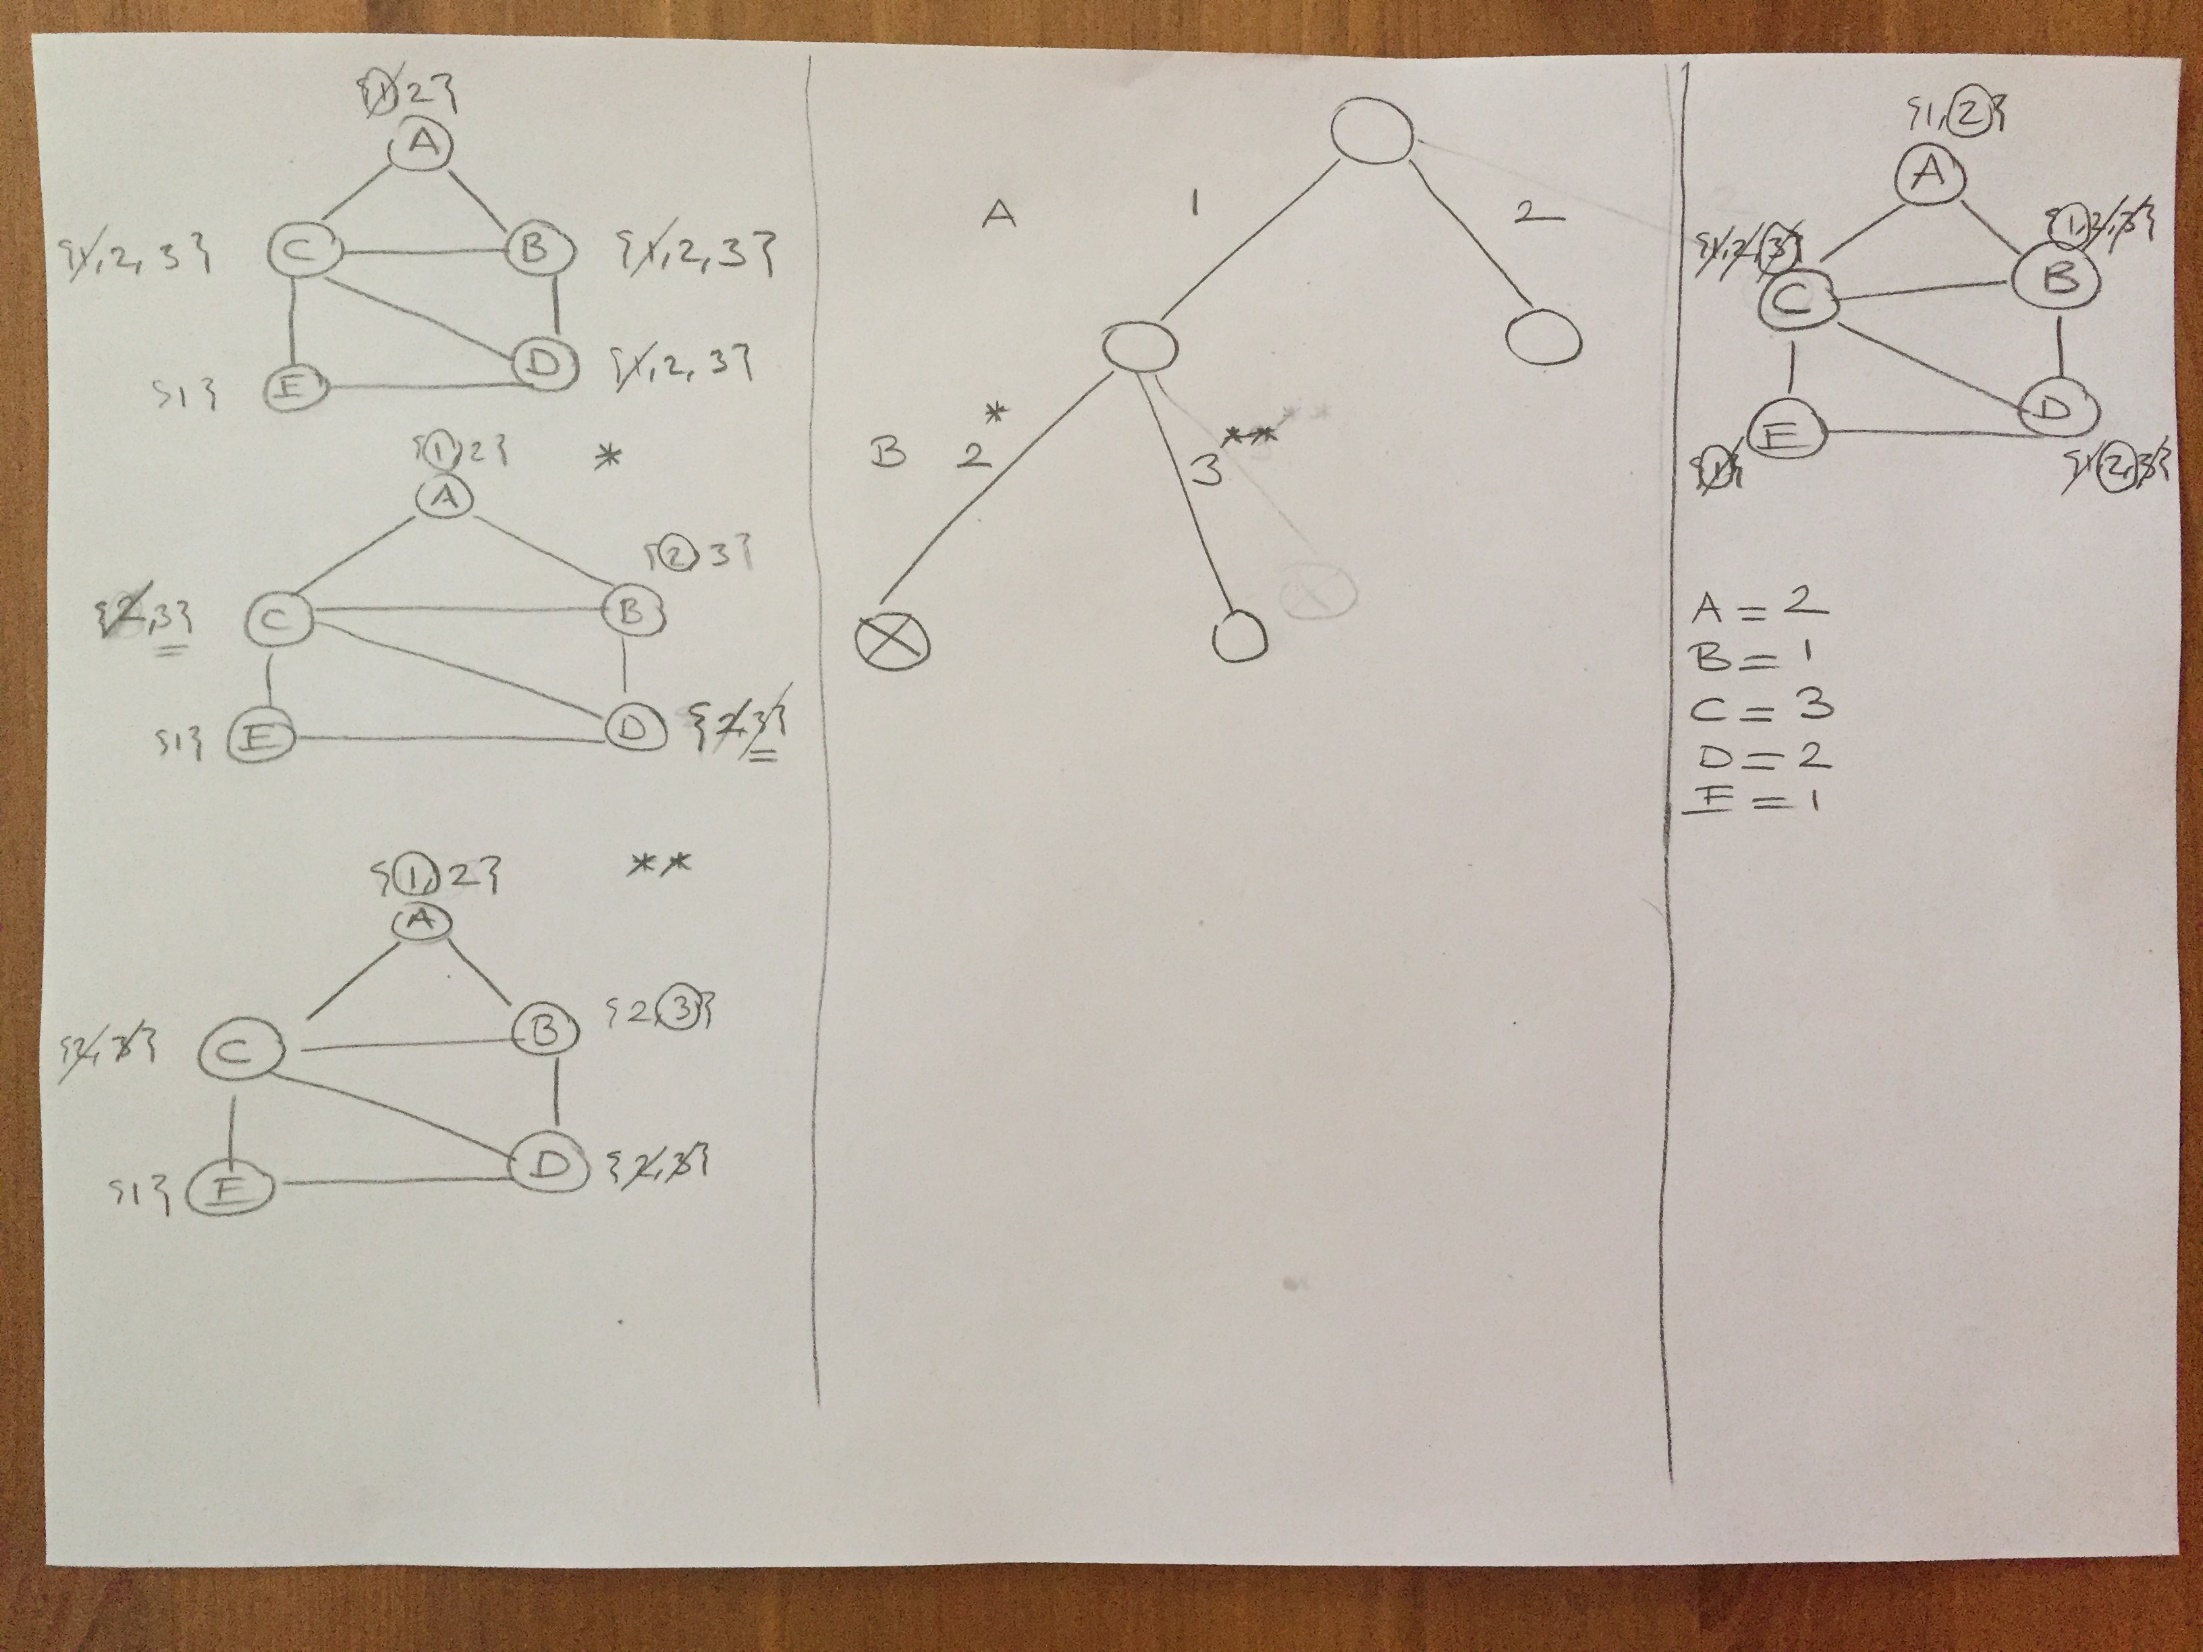 {1,2}
A
{1,2,3} C B {1,2,3}
{1} E D {1,2,3}
{1,2} *
A
{2,3}
{2,3} C B
{1} E D {2,3}
{1,2} **
A
{2,3}
{2,3} C B
{1} E D {2,3}
A 1 2
*
B 2 3 **
{1,2}
A
{1,2,3} {1,2,3}
C B
E D
{1} {1,2,3}
A = 2
B = 1
C = 3
D = 2
E = 1